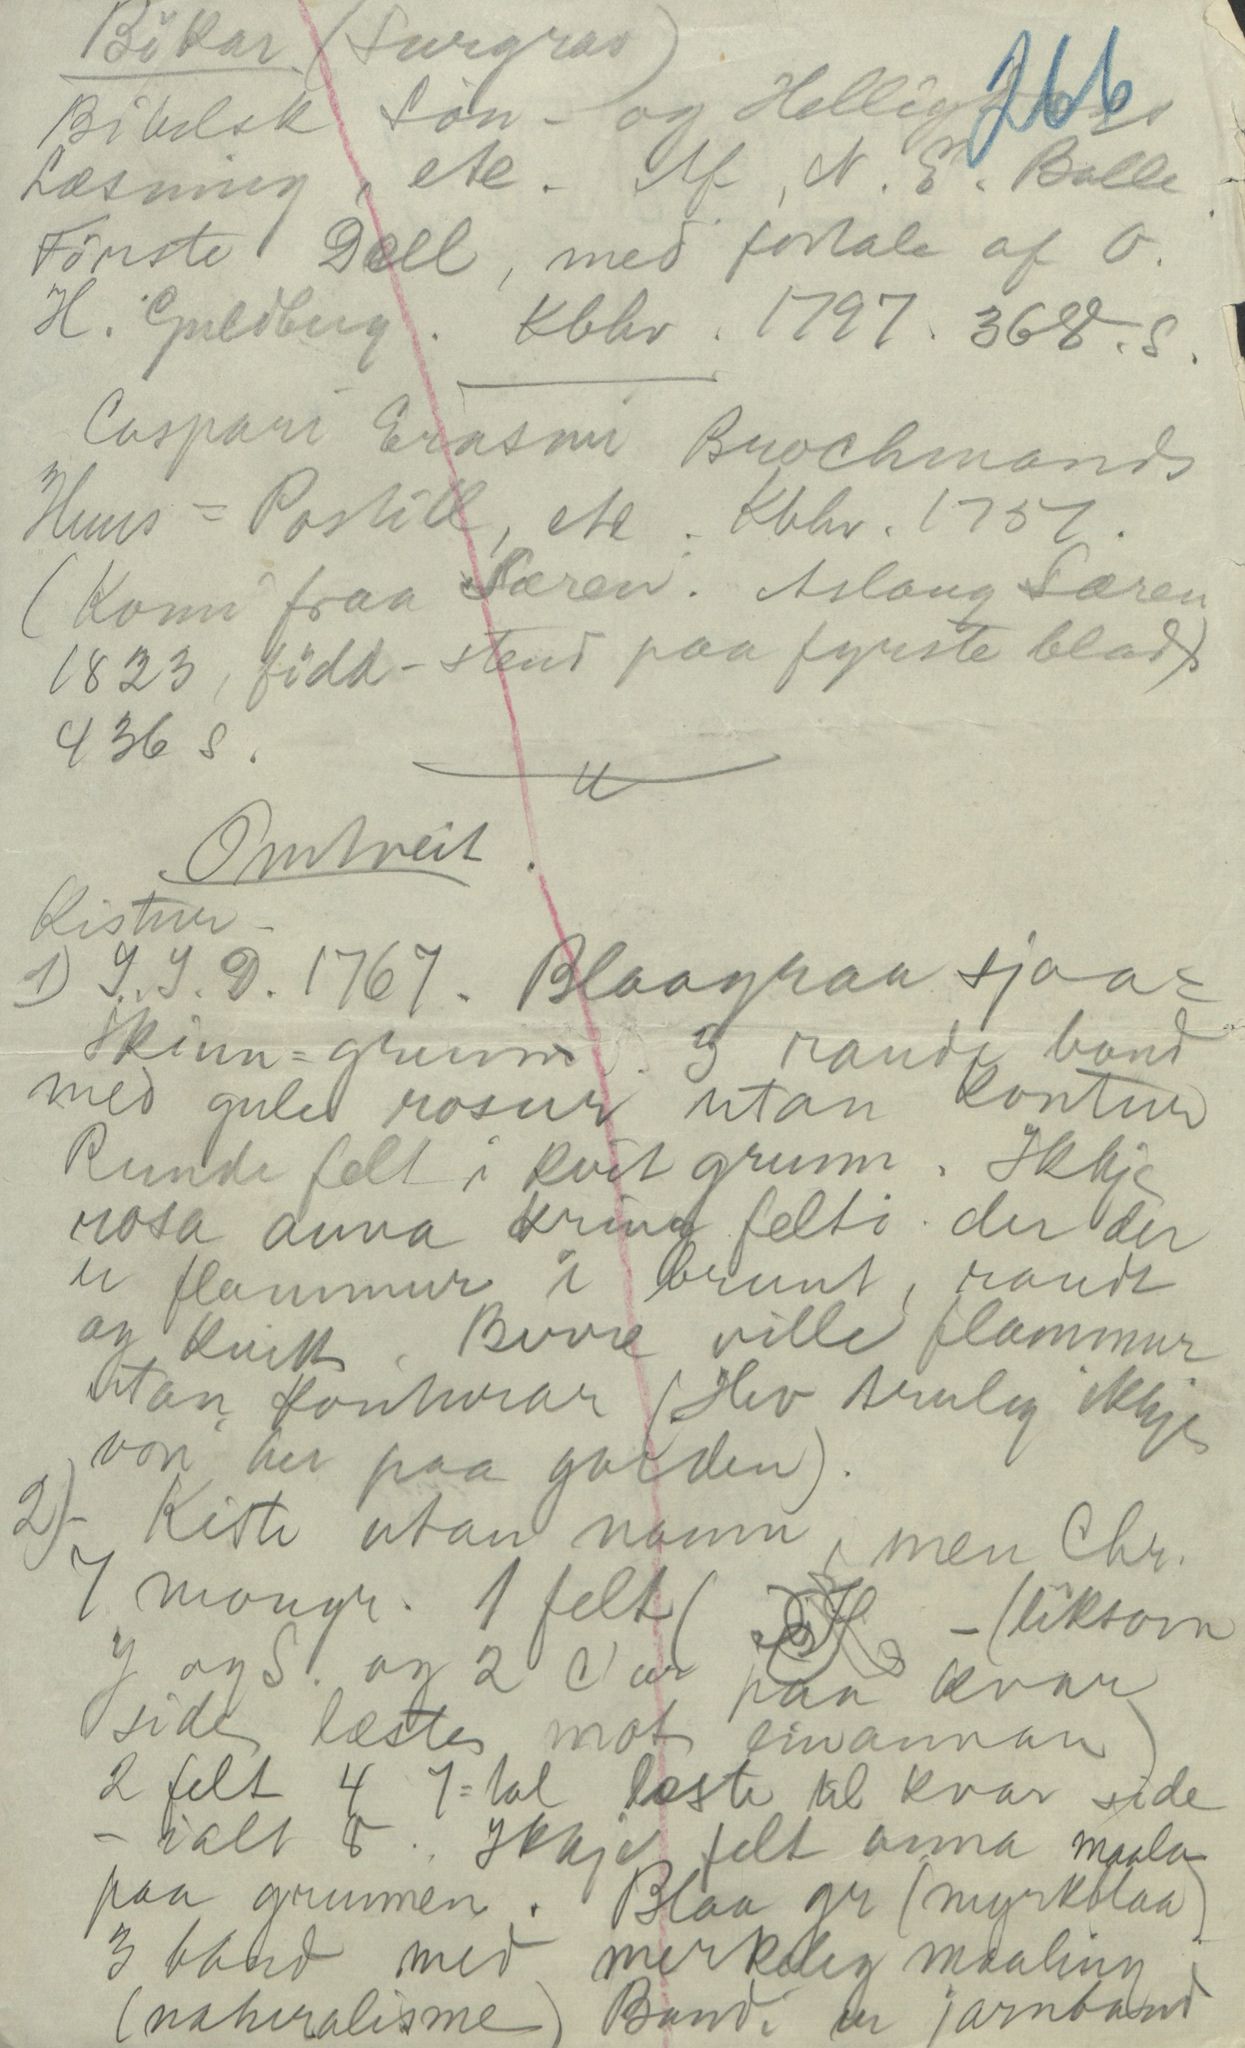 Bökar (Surgrav)
266
Bibelsk Søn- og Helligdags
Læsning, etc. Af, N. E. Balle
Förste Deel, med fortale af O.
H. Guldberg. Kbhv. 1797. 368 s.
Caspari Erasmi Brochmands
Huus=Postill, etc. Kbhv. 1757.
(Komi fraa Særen. Aslaug Særen
1823, född - stend paa fyrste blad)
436 s.
Omtveit.
Kistur -
1) J. J. D. 1767. Blaagraa sjaa=
skinn=grunn. 3 raude band
med gule rosur utan kontur
Runde felt i kvit grunn. Ikkje
rosa anna kring felti der der
er flammur i brunt, raudt
og kvitt. Berre ville flammur
utan konturar (Hev truleg ikkje
vori her paa garden).
2)- Kiste utan namn, men Chr.
7 monogr. 1 felt ( - (liksom
J og S. og 2 C'ar paa kvar
side læste mot einannan)
2 felt 4 7=tal læste til kvar side
- ialt 8. Ikkje felt anna maala
paa grunnen. Blaa gr (myrkblaa)
3 band med merkeleg maaling
(naturalisme) Bandi er jarnband